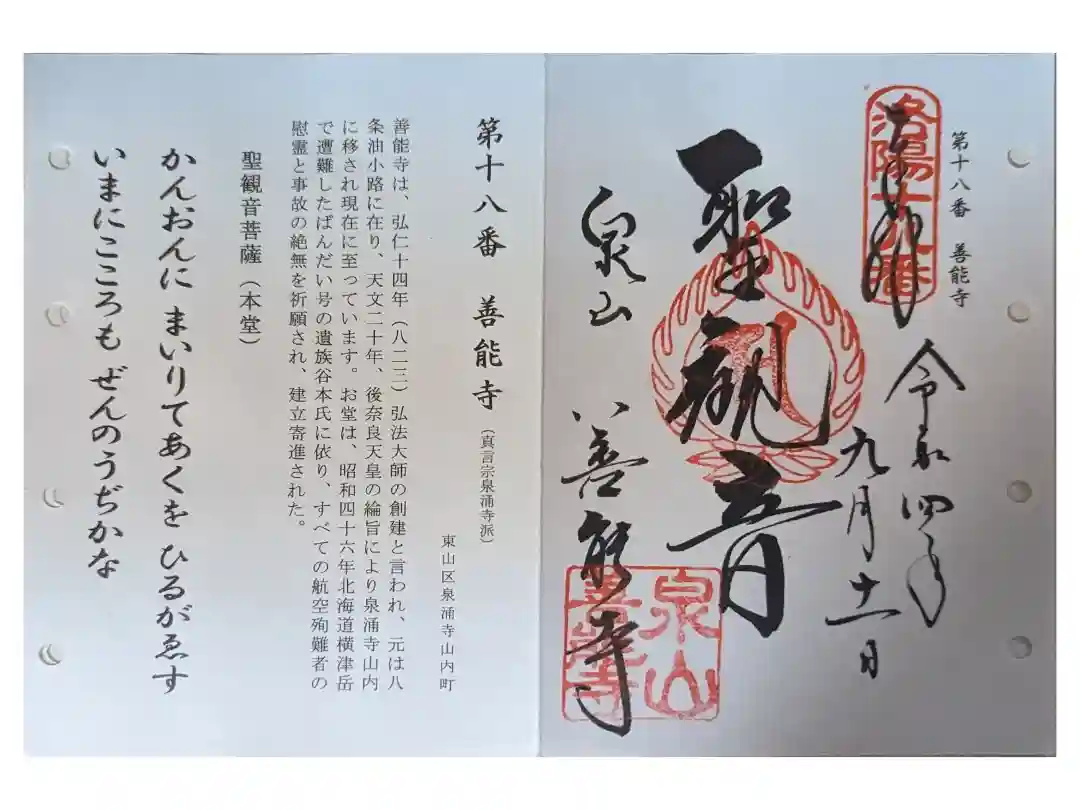 第十八番 善能寺
洛陽十八番
奉拝
令和四年
九月十一日
聖観音
泉山
善能寺
泉山
善能寺
第十八番 善能寺(真言宗泉涌寺派)
東山区泉涌寺山内町
善能寺は、弘仁十四年(八二三)弘法大師の創建と言われ、元は八
条油小路に在り、天文二十年、後奈良天皇の綸旨により泉涌寺山内
に移され現在に至っています。お堂は、昭和四十六年北海道横津岳
で遭難したばんだい号の遺族谷本氏に依り、すべての航空殉難者の
慰霊と事故の絶無を祈願され、建立寄進された。
聖観音菩薩(本堂)
かんおんに まいりてあくを ひるがゑす
いまにこころも ぜんのうぢかな